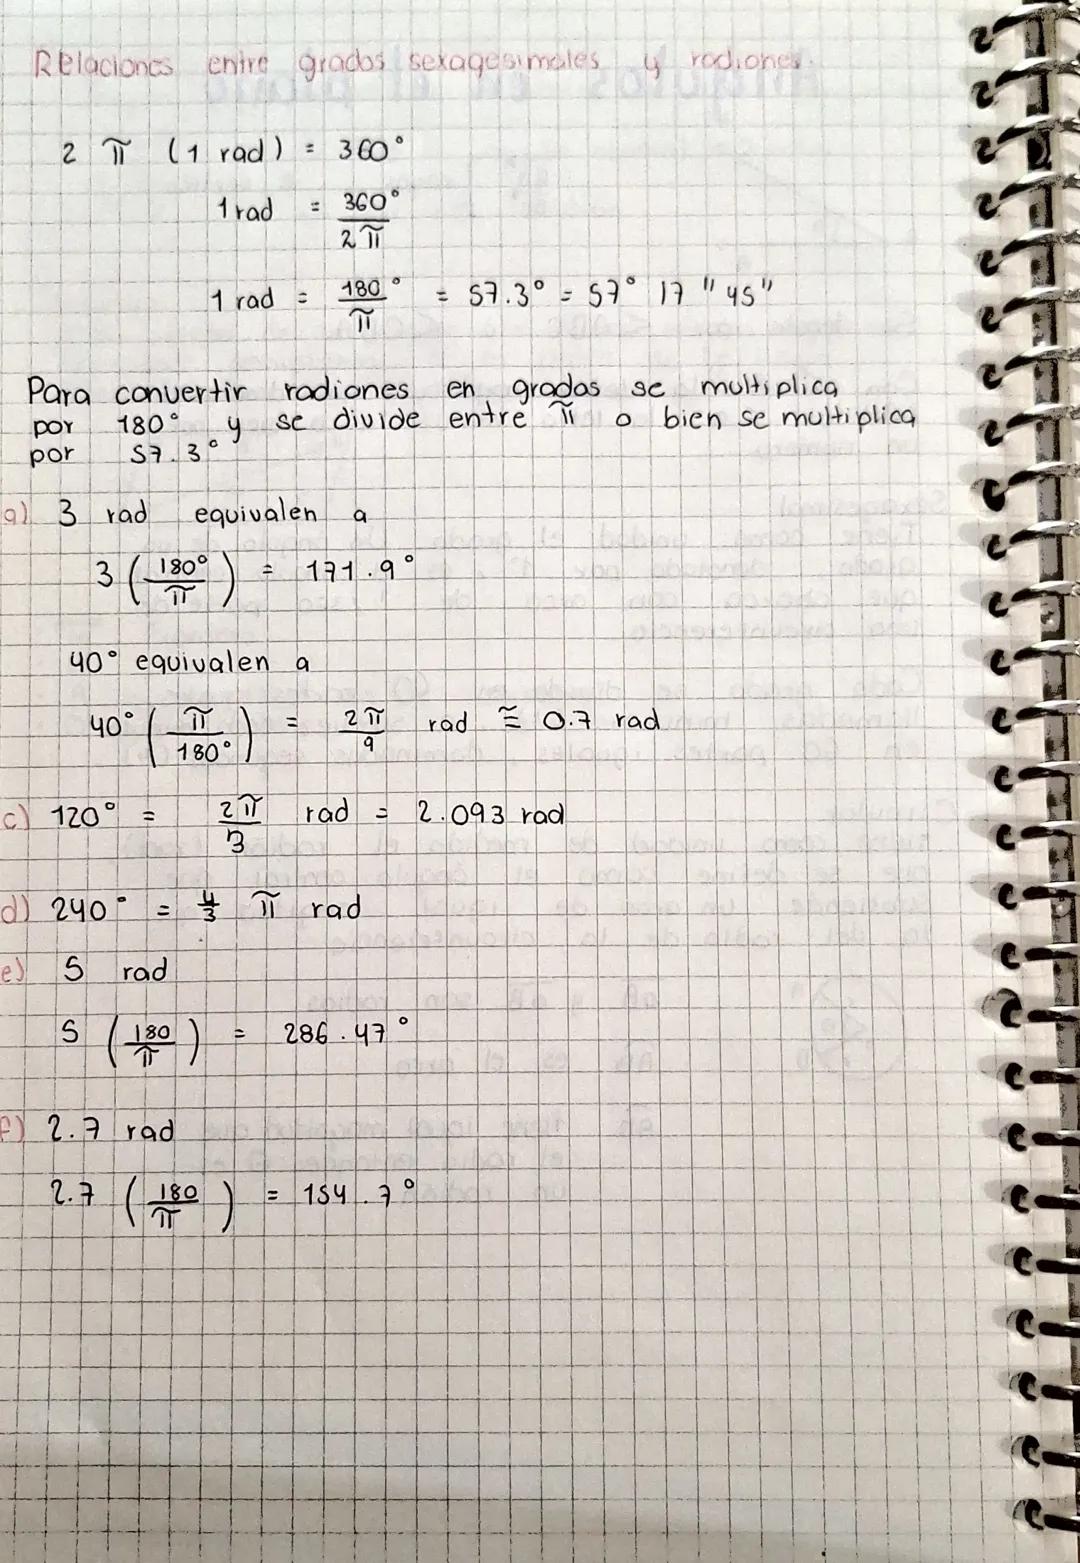 Relaciones entre grados sexagesimales y radiones.
2 π (1 rad) = 360°
1 rad = 360° / 2π
1 rad = 180° / π = 57.3° = 57° 17 " 45"
Para convertir radiones en grados se multiplica
por 180° y se divide entre π o bien se multiplica
por 57.3°
a) 3 rad equivalen a
3 (180° / π) = 171.9°
40° equivalen a
40° (π / 180°) = 2π / 9 rad ≅ 0.7 rad
c) 120° = 2π / 3 rad = 2.093 rad
d) 240° = 4/3 π rad
e) 5 rad
5 (180 / π) = 286.47°
f) 2.7 rad
2.7 (180 / π) = 154.7°